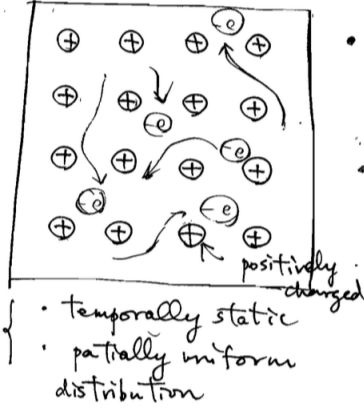 -e
⊕ ⊕ ⊕ ⊕
⊕ ⊕ ⊕ ⊕
-e
-e
⊕ ⊕ ⊕ ⊕
-e -e
⊕ ⊕ ⊕ ⊕
positively
charged
· temporally static
· patially uniform
distribution